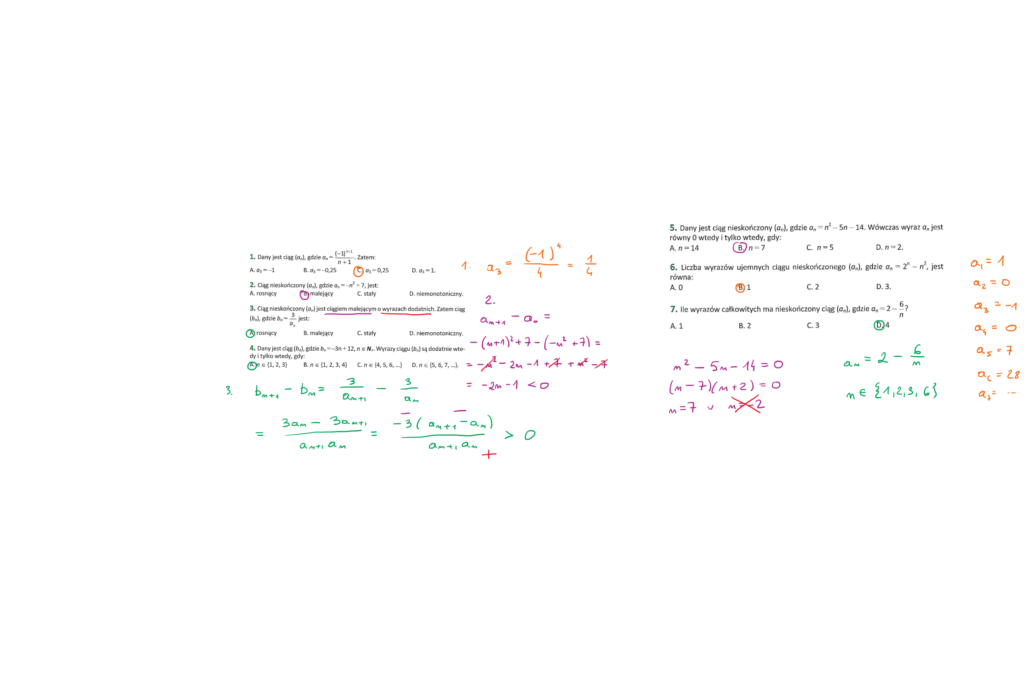 1. Dany jest ciąg (aₙ), gdzie aₙ = (-1)ⁿ⁺¹ / n + 1. Zatem:
A. a₃ = -1 B. a₃ = -0,25 C. a₃ = 0,25 D. a₃ = 1.
2. Ciąg nieskończony (aₙ), gdzie aₙ = -n² + 7, jest:
A. rosnący B. malejący C. stały D. niemonotoniczny.
3. Ciąg nieskończony (aₙ) jest ciągiem malejącym o wyrazach dodatnich. Zatem ciąg
(bₙ), gdzie bₙ = 3/aₙ jest:
A. rosnący B. malejący C. stały D. niemonotoniczny.
4. Dany jest ciąg (bₙ), gdzie bₙ = -3n + 12, n ∈ N₊. Wyrazy ciągu (bₙ) są dodatnie wte-
dy i tylko wtedy, gdy:
A. n ∈ {1, 2, 3} B. n ∈ {1, 2, 3, 4} C. n ∈ {4, 5, 6, ...} D. n ∈ {5, 6, 7, ...}.
1. a₃ = (-1)⁴ / 4 = 1/4
2.
aₙ₊₁ - aₙ =
-(n+1)² + 7 - (-n² + 7) =
= -n² - 2n - 1 + 7 + n² - 7
= -2n - 1 < 0
3. bₙ₊₁ - bₙ = 3/aₙ₊₁ - 3/aₙ
= 3aₙ - 3aₙ₊₁ / aₙ₊₁ aₙ = -3(aₙ₊₁ - aₙ) / aₙ₊₁ aₙ > 0
- -
+
5. Dany jest ciąg nieskończony (aₙ), gdzie aₙ = n² - 5n - 14. Wówczas wyraz aₙ jest
równy 0 wtedy i tylko wtedy, gdy:
A. n = 14 B. n = 7 C. n = 5 D. n = 2.
6. Liczba wyrazów ujemnych ciągu nieskończonego (aₙ), gdzie aₙ = 2ⁿ - n², jest
równa:
A. 0 B. 1 C. 2 D. 3.
7. Ile wyrazów całkowitych ma nieskończony ciąg (aₙ), gdzie aₙ = 2 - 6/n?
A. 1 B. 2 C. 3 D. 4
n² - 5n - 14 = 0
(n - 7)(n + 2) = 0
n = 7 ∪ n = -2
aₙ = 2 - 6/n
n ∈ {1, 2, 3, 6}
a₁ = 1
a₂ = 0
a₃ = -1
a₄ = 0
a₅ = 7
a₆ = 28
a₇ = ...